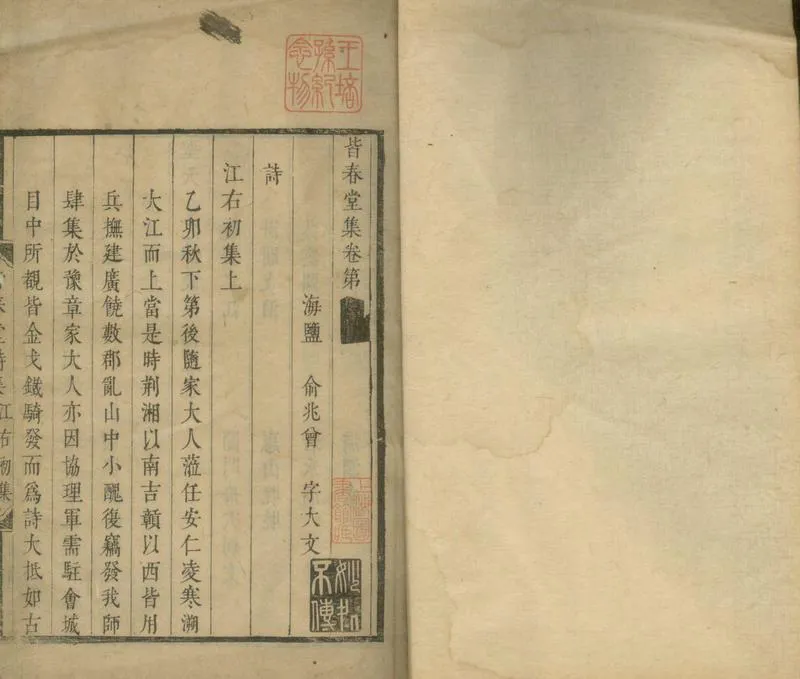 皆春堂集卷第
海鹽 俞兆曾 字大文
詩
江右初集上
乙卯秋下第後隨家大人蒞任安仁凌寒溯
大江而上當是時荆湘以南吉贛以西皆用
兵撫建廣饒數郡亂山中小醜復竊發我師
肆集於豫章家大人亦因協理軍需駐會城
目中所覩皆金戈鐵騎發而爲詩大抵如古
堂春堂詩集 江右初集
王培孫紀念物
不傳